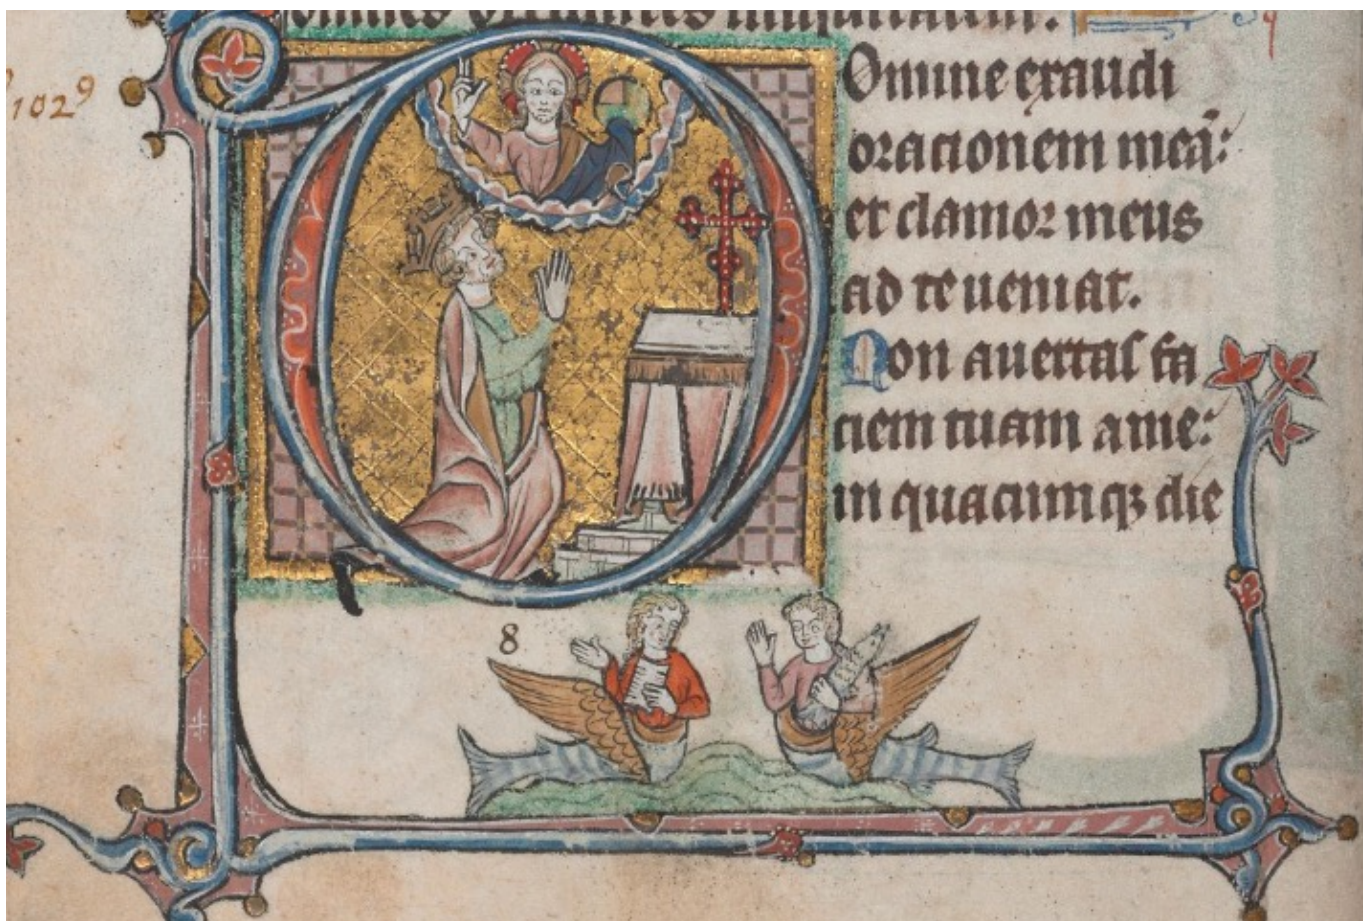 omnes
Domine exaudi
orationem meā:
et clamor meus
ad te ueniat.
Non auertas fa
ciem tuam a me:
in quacumqꝫ die
1029
8